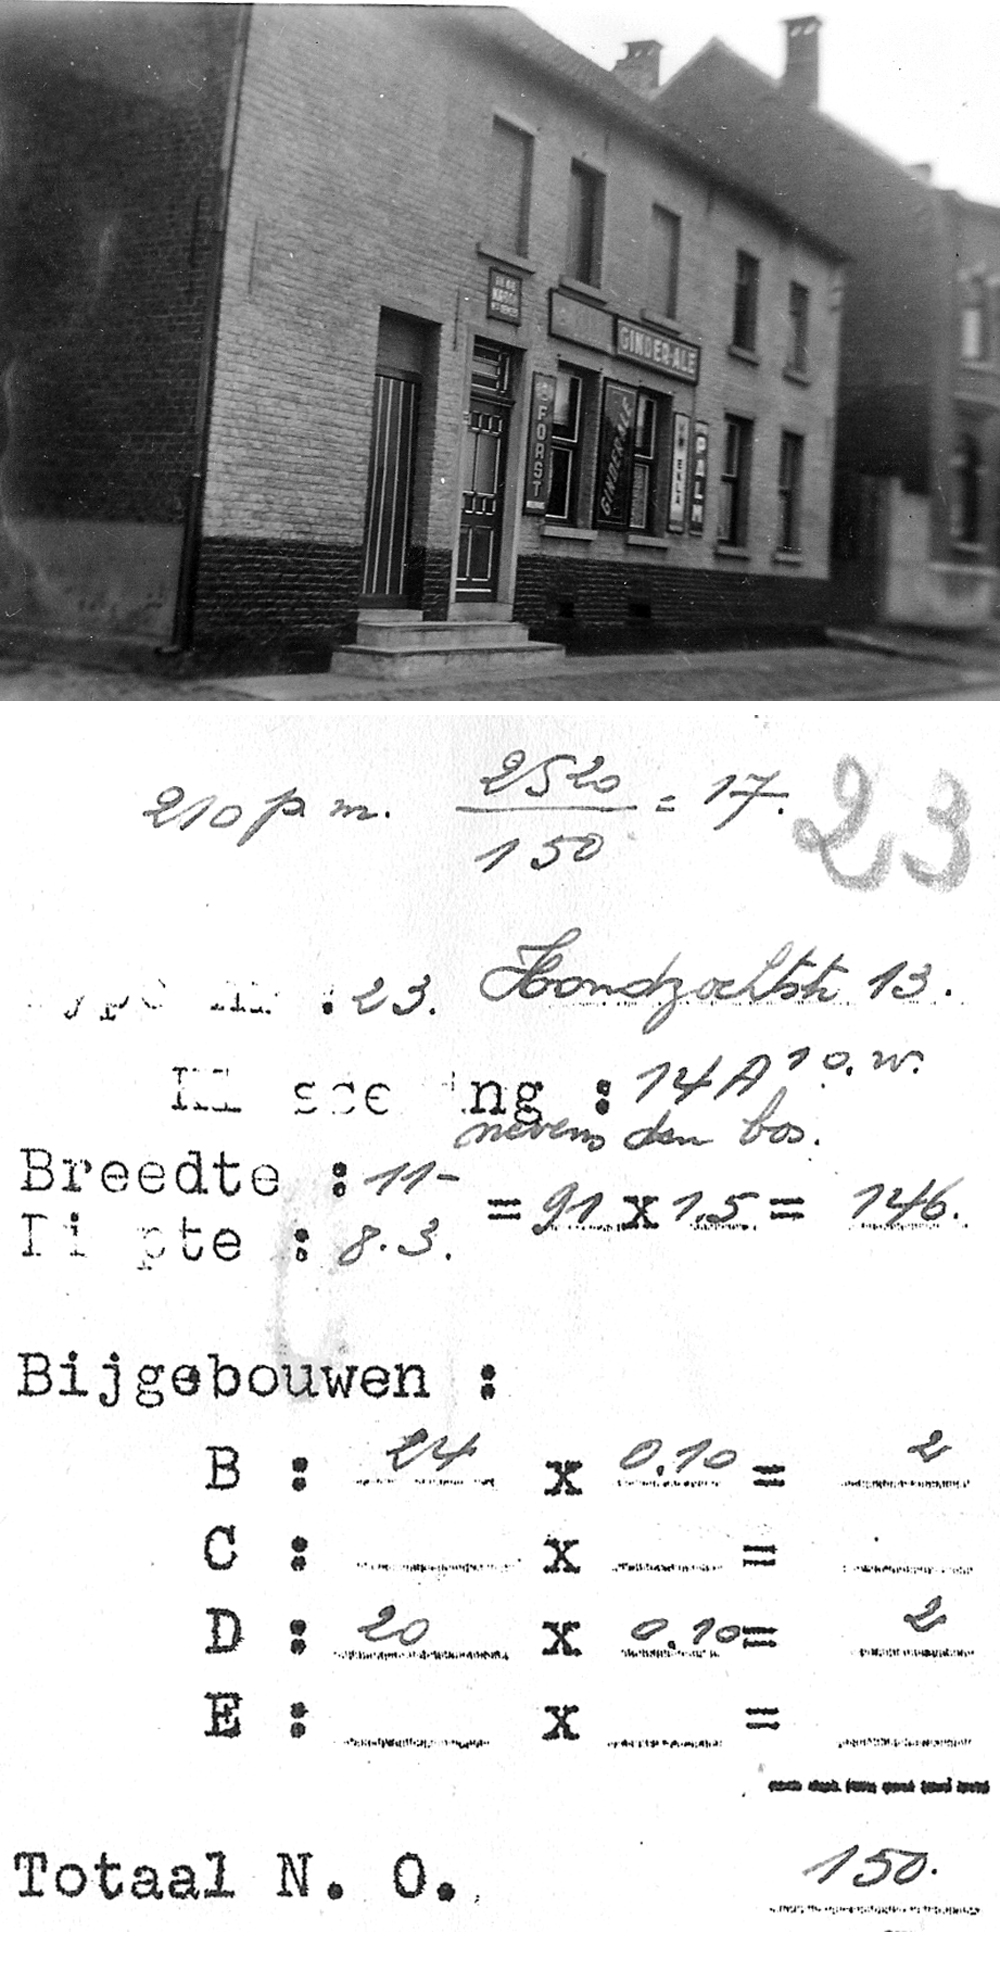 GINDER-ALE
FORST
GINDER-ALE
PALM
210 p. m. 2520 / 150 = 17.
23
: 23. Hondzochtstr 13.
: 14 A 10. w.
nevens den bos.
Breedte : 11-
= 91 x 1.5 = 146.
: 8.3.
Bijgebouwen :
B : 24 x 0.10 = 2
C : x =
D : 20 x 0.10 = 2
E : x =
Totaal N. O. 150.